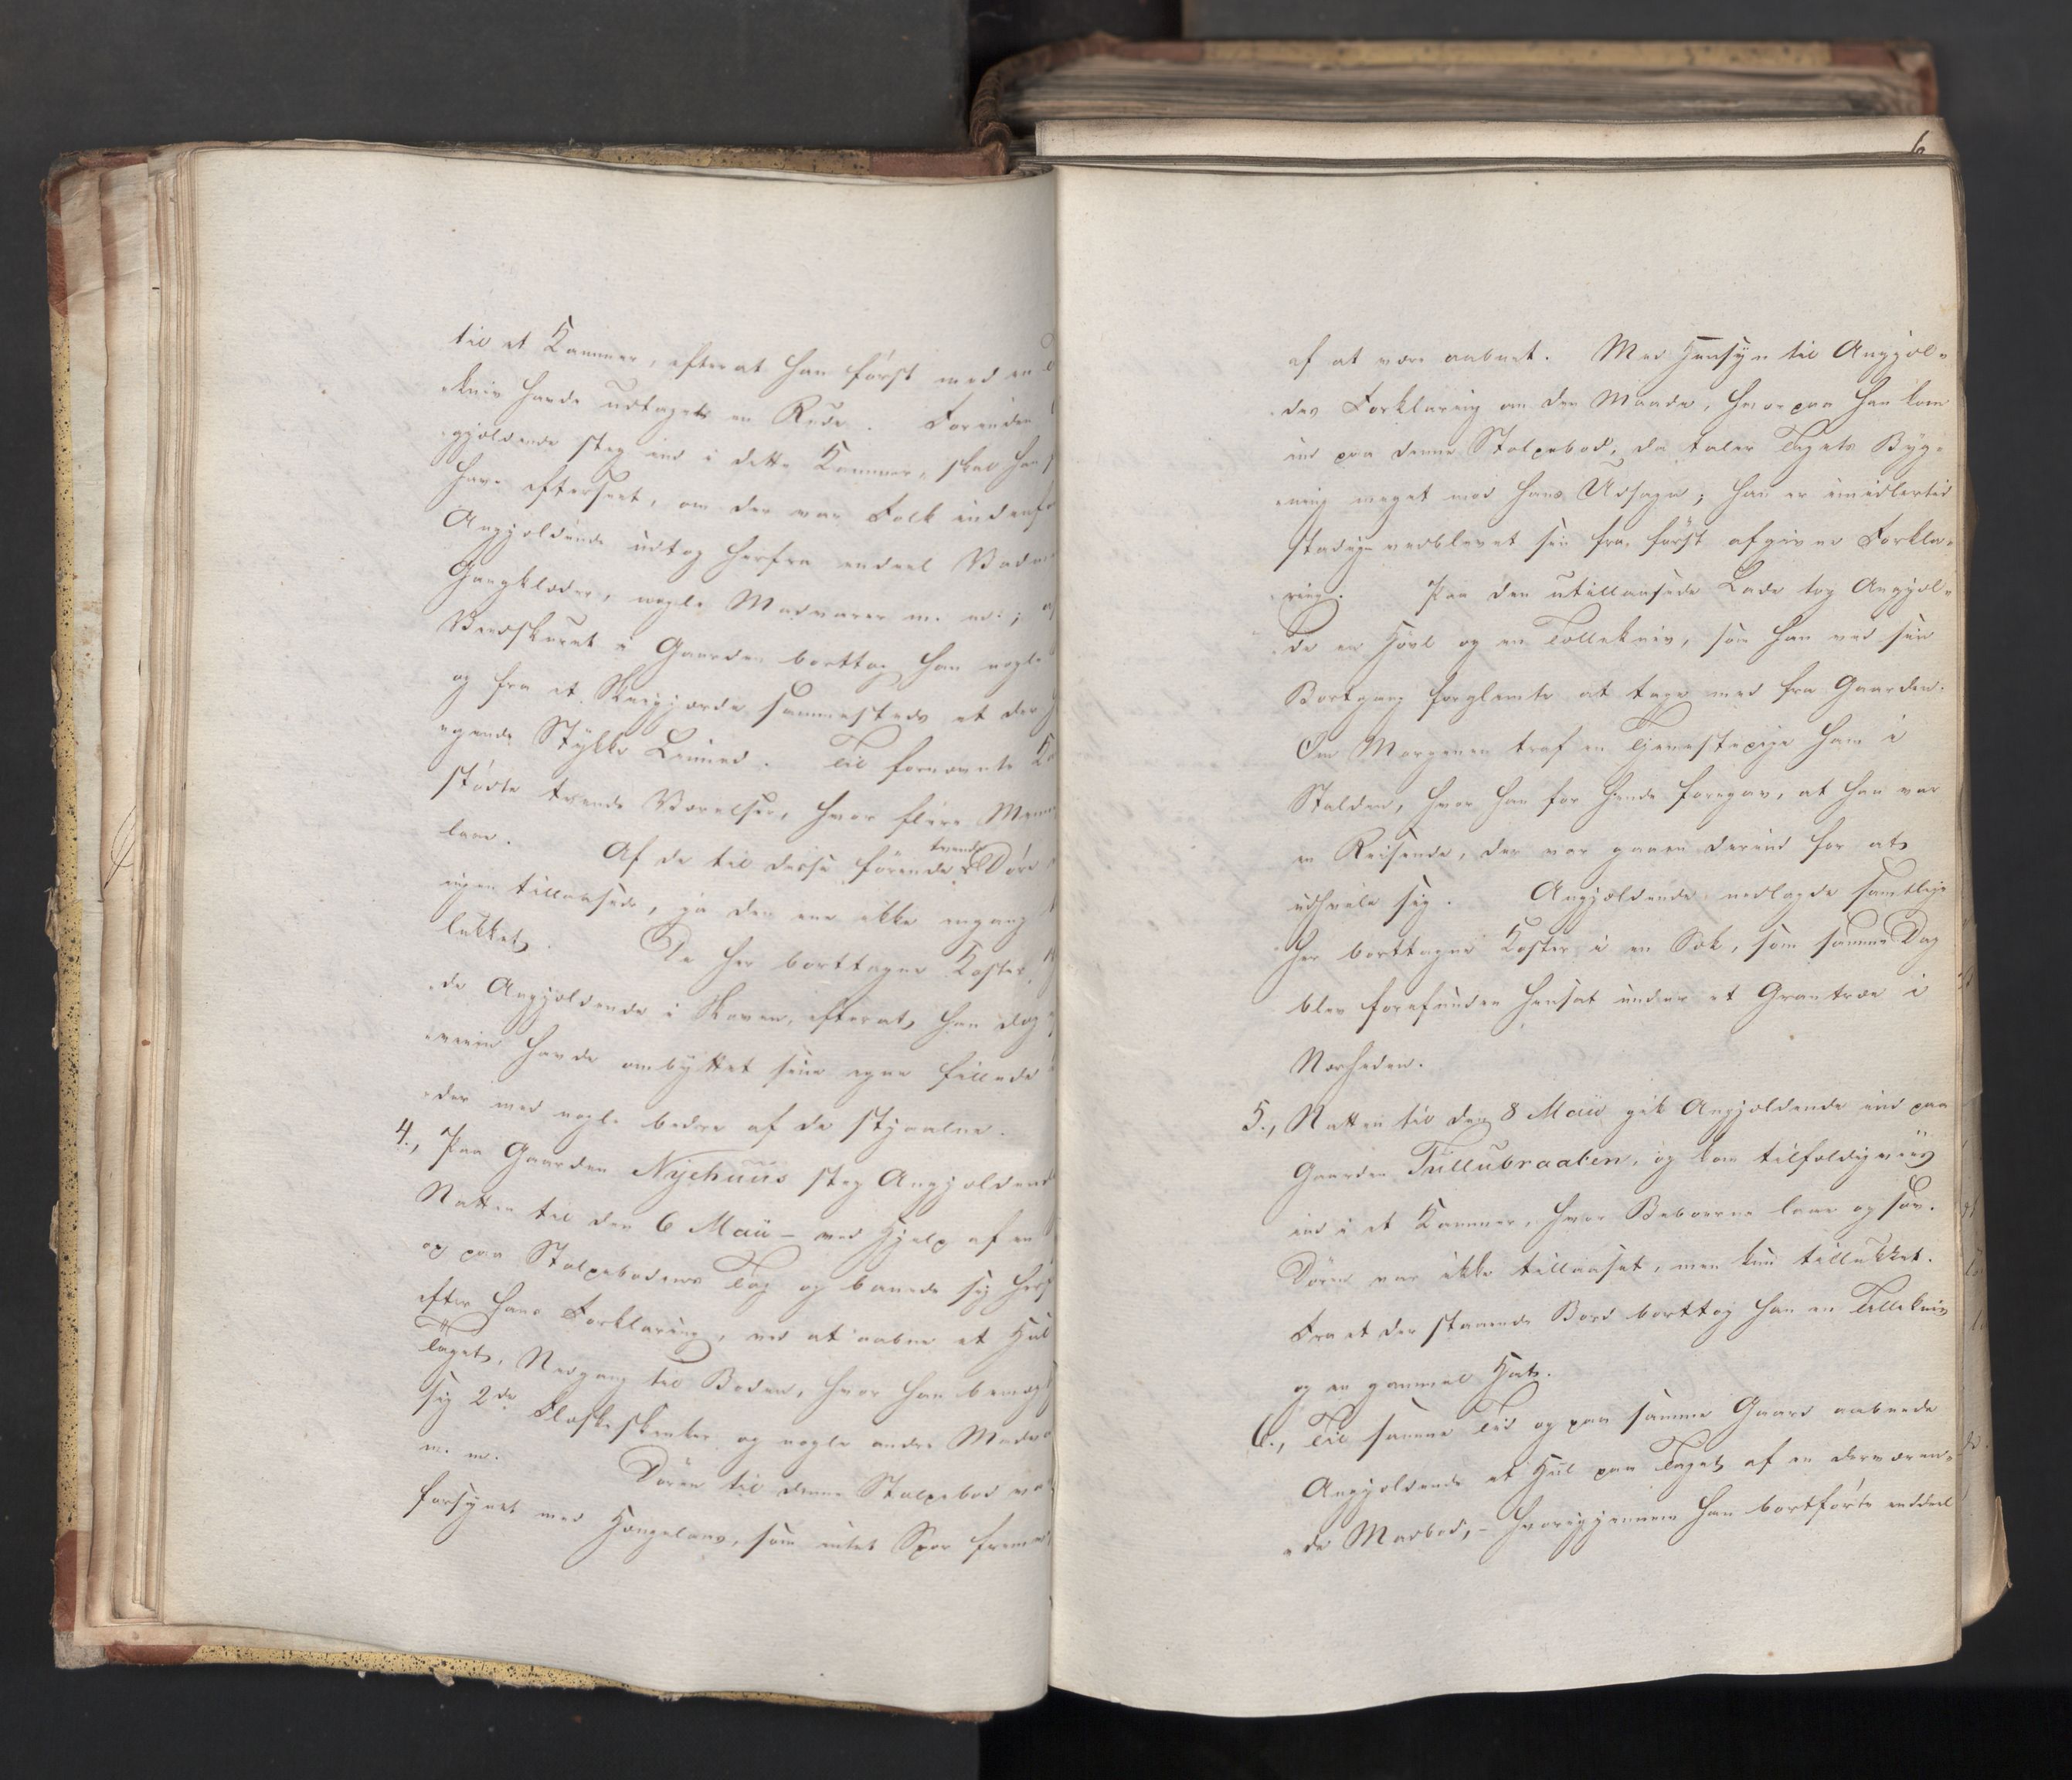 til et Kammer, efterat han først med en
Kniv havde udtaget en Rude. Forinden
gjældende steg ind i dette Kammer, skal han
have efterseet, om der var Folk indenf
Angjældende udtog herfra endeel Vadm
Gangklæder, nogle Madvarer m. m.;
Vedskuret i Gaarden borttog han nogle
og fra et Skigjærde sammesteds et der
egende Stykke Lærred. Til fornævnte Ka
stødte tvende Værelser, hvor flere Menn
laae. Af de til disse førende tvende Døre
ingen tillaasede, ja den ene ikke engang
lukket. De her borttagne Koster
de Angjældende i Skoven, efterat han dog
havde ombyttet sine egne fillede
der med nogle bedre af de stjaalne.
4., Paa Gaarden Nyehuus steg Angjældend
Natten til den 6 Maii - ved Hjelp af en
op paa Stolpebodens Tag og banede sig her
efter hans Forklaring, ved at aabne et Hul
Taget, Nedgang til Boden, hvor han bemæg
sig 2de Flæskeskinker og nogle andre Madva
m. m. Døren til denne Stolpebod var
forsynet med Hængelaas, som intet Spor frem
6
af at være aabnet. Med Hensyn til Angjæl-
des Forklaring om den Maade, hvorpaa han kom
ind paa denne Stolpebod, da taler Tagets Byg-
ning meget mod hans Udsagn; han er imidlertid
stadig vedblevet sin fra først afgivne Forkla-
ring. Paa den utillaasede Lade tog Angjæl-
de en Høvl og en Tollekniv, som han ved sin
Bortgang forglemte at tage med fra Gaarden.
Om Morgenen traf en Tjenestepige ham i
Stalden, hvor han for hende foregav, at han var
en Reisende, der var gaaen derind for at
udhvile sig. Angjældende nedlagde samtlige
her borttagne Koster i en Sæk, som samme Dag
blev forefunden hensat under et Grantræe i
Nærheden.
5., Natten til den 8 Maii gik Angjældende ind paa
Gaarden Tullubraaten, og kom tilfældigviis
ind i et Kammer, hvor Beboerne laae og sov.
Døren var ikke tillaaset, men kun tillukket.
Fra et der staaende Bord borttog han en Tollekniv
og en gammel Hat.
6., Til samme Tid og paa samme Gaard aabnede
Angjældende et Hul paa Taget af en derværen-
de Madbod, - hvorigjennem han bortførte endeel